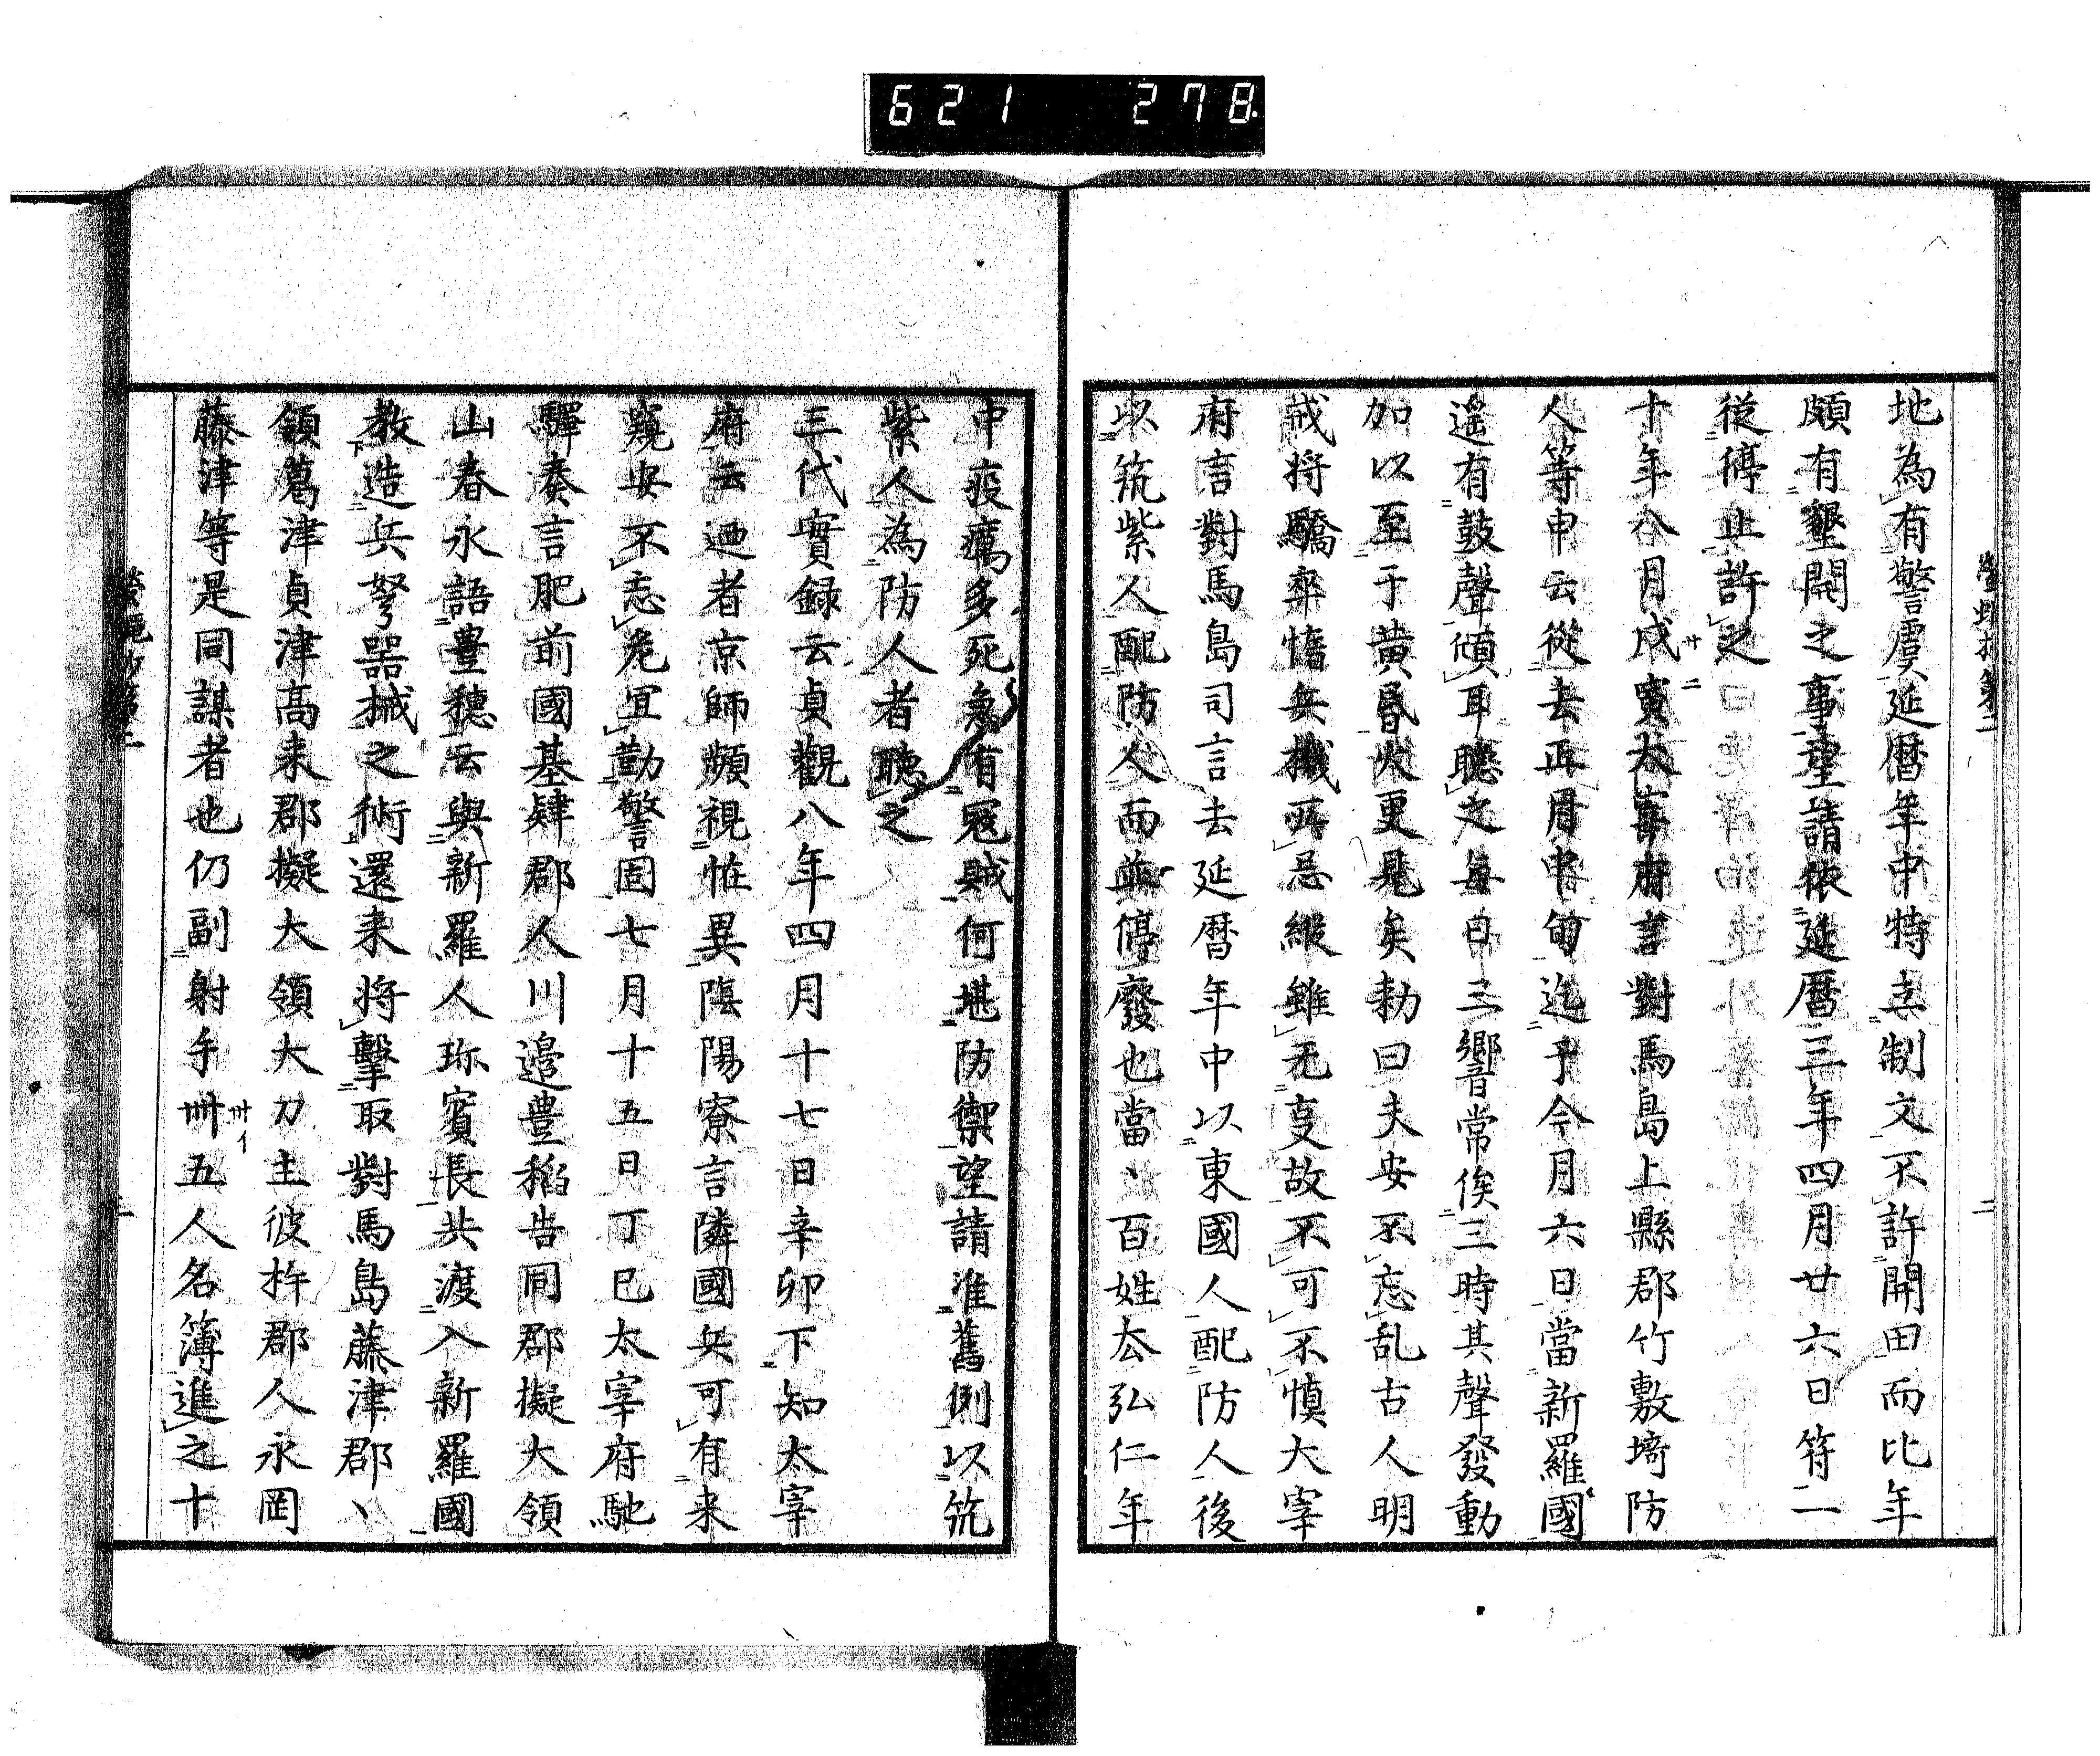 621 278
地為有警虞延暦年中特立制文不許開田而比年
頗有墾開之事望請依延暦三年四月廿六日符二
従停止許之
十年八月戍寅太宰府言對馬島上縣郡竹敷埼防
廿二
人等申云從去正月中旬迄于今月六日當新羅國
遥有鼓聲傾耳聴之毎日三響音常俟三時其聲發動
加以至于黄昏火更見矣勅曰夫安不忘乱古人明
戒将驕卒惰兵機所忌縦雖无支故不可不慎大宰
府言對馬島司言去延暦年中以東國人配防人後
以筑紫人配防人而並停廢也當丶百姓厺弘仁年
中疫癘多死急有冦賊何堪防禦望請准舊例以筑
紫人為防人者聴之
三代實録云貞觀八年四月十七日辛卯下知太宰
府云迺者京師頻視恠異隂陽寮言隣國兵可有来
窺安不忘危宜勤警固七月十五日丁巳太宰府馳
驛奏言肥前國基肄郡人川邉豊稻告同郡擬大領
山春永語豊穂云與新羅人珎賓長共渡入新羅國
教造兵弩器械之術還来将擊取對馬島藤津郡丶
領葛津貞津髙来郡擬大領大刀主彼杵郡人永岡
藤津等是同謀者也仍副射手卌五人名簿進之十
卅イ